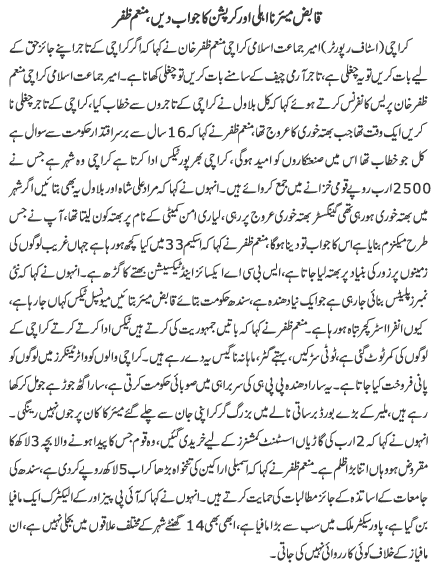 قابض میئر نااہلی اور کرپشن کا جواب دیں، منعم ظفر
کراچی (اسٹاف رپورٹر) امیر جماعت اسلامی کراچی منعم ظفر خان نے کہا کہ اگر کراچی کے تاجر اپنے جائز حق کے
لیے بات کریں تو یہ چغلی ہے، تاجر آرمی چیف کے سامنے بات کریں تو چغلی کھانا ہے۔ امیر جماعت اسلامی کراچی منعم
ظفر خان پریس کانفرنس کرتے ہوئے کہا کہ کل بلاول نے کراچی کے تاجروں سے خطاب کیا، کراچی کے تاجر چغلی نا
کریں ایک وقت تھا جب بھتہ خوری کا عروج تھا، منعم ظفر نے کہا کہ 16 سال سے برسر اقتدار حکومت سے سوال ہے
کل جو خطاب تھا اس میں صنعتکاروں کو امید ہوگی، کراچی بھرپور ٹیکس ادا کرتا ہے کراچی وہ شہر ہے جس نے
2500 ارب روپے قومی خزانے میں جمع کروائے ہیں۔ انہوں نے کہا کہ مراد علی شاہ اور بلاول یہ بھی بتائیں اگر شہر
میں بھتہ خوری ہورہی تھی گینگسٹر بھتہ خوری عروج پر رہی، لیاری امن کمیٹی کے نام پر بھتہ کون لیتا تھا، آپ نے جس
طرح میکنزم بنایا ہے اس کا جواب تو دینا ہوگا، منعم ظفر نے کہا کہ اسکیم 33 میں کیا کچھ ہورہا ہے جہاں غریب لوگوں کی
زمینوں پر زور کی بنیاد پر بھتہ لیا جاتا ہے، ایس بی سی اے ایکسائز اینڈ ٹیکسیشن بھتے کا گڑھ ہے۔ انہوں نے کہا کہ نئی
نمبرز پلیٹس بنائی جارہی ہے جو ایک نیا دھندہ ہے، سندھ حکومت بتائے قابض میئر بتائیں میونسپل ٹیکس کہاں جارہا ہے،
کیوں انفرا اسٹرکچر تباہ ہورہا ہے۔ منعم ظفر نے کہا کہ باتیں جمہوریت کی کرتے ہیں ٹیکس ادا کرتے کرتے کراچی کے
لوگوں کی کمر ٹوٹ گئی ہے، ٹوٹی سڑکیں، بہتے گٹر، ماہانہ ناگیس یہ دے رہے ہیں۔ کراچی والوں کو واٹر ٹینکرز میں لوگوں کو
پانی فروخت کیا جاتا ہے۔ یہ سارا دھندہ پی پی پی کی سربراہی میں صوبائی حکومت کرتی ہے، سارا گٹھ جوڑ ہے جو مل کر کھا
رہے ہیں، ملیر کے بڑے بورڈ برساتی نالے میں بزرگ گر کر اپنی جان سے چلے گئے میئر کا کان پر جوں نہیں رینگی۔
انہوں نے کہا کہ 2 ارب کی گاڑیاں اسسٹنٹ کمشنرز کے لیے خریدی گئیں، وہ قوم جس کا پیدا ہونے والا بچہ 3 لاکھ کا
مقروض ہو وہاں اتنا بڑا ظلم ہے۔ منعم ظفر نے کہا کہ اسمبلی اراکین کی تنخواہ بڑھا کر اب 5 لاکھ روپے کردی ہے، سندھ کی
جامعات کے اساتذہ کے جائز مطالبات کی حمایت کرتے ہیں۔ انہوں نے کہا کہ آئی پی پیز اور کے الیکٹرک ایک مافیا
بن گیا ہے، پاور سیکٹر ملک میں سب سے بڑا مافیا ہے، ابھی بھی 14 گھنٹے شہر کے مختلف علاقوں میں بجلی نہیں ہے، ان
مافیاز کے خلاف کوئی کارروائی نہیں کی جاتی۔